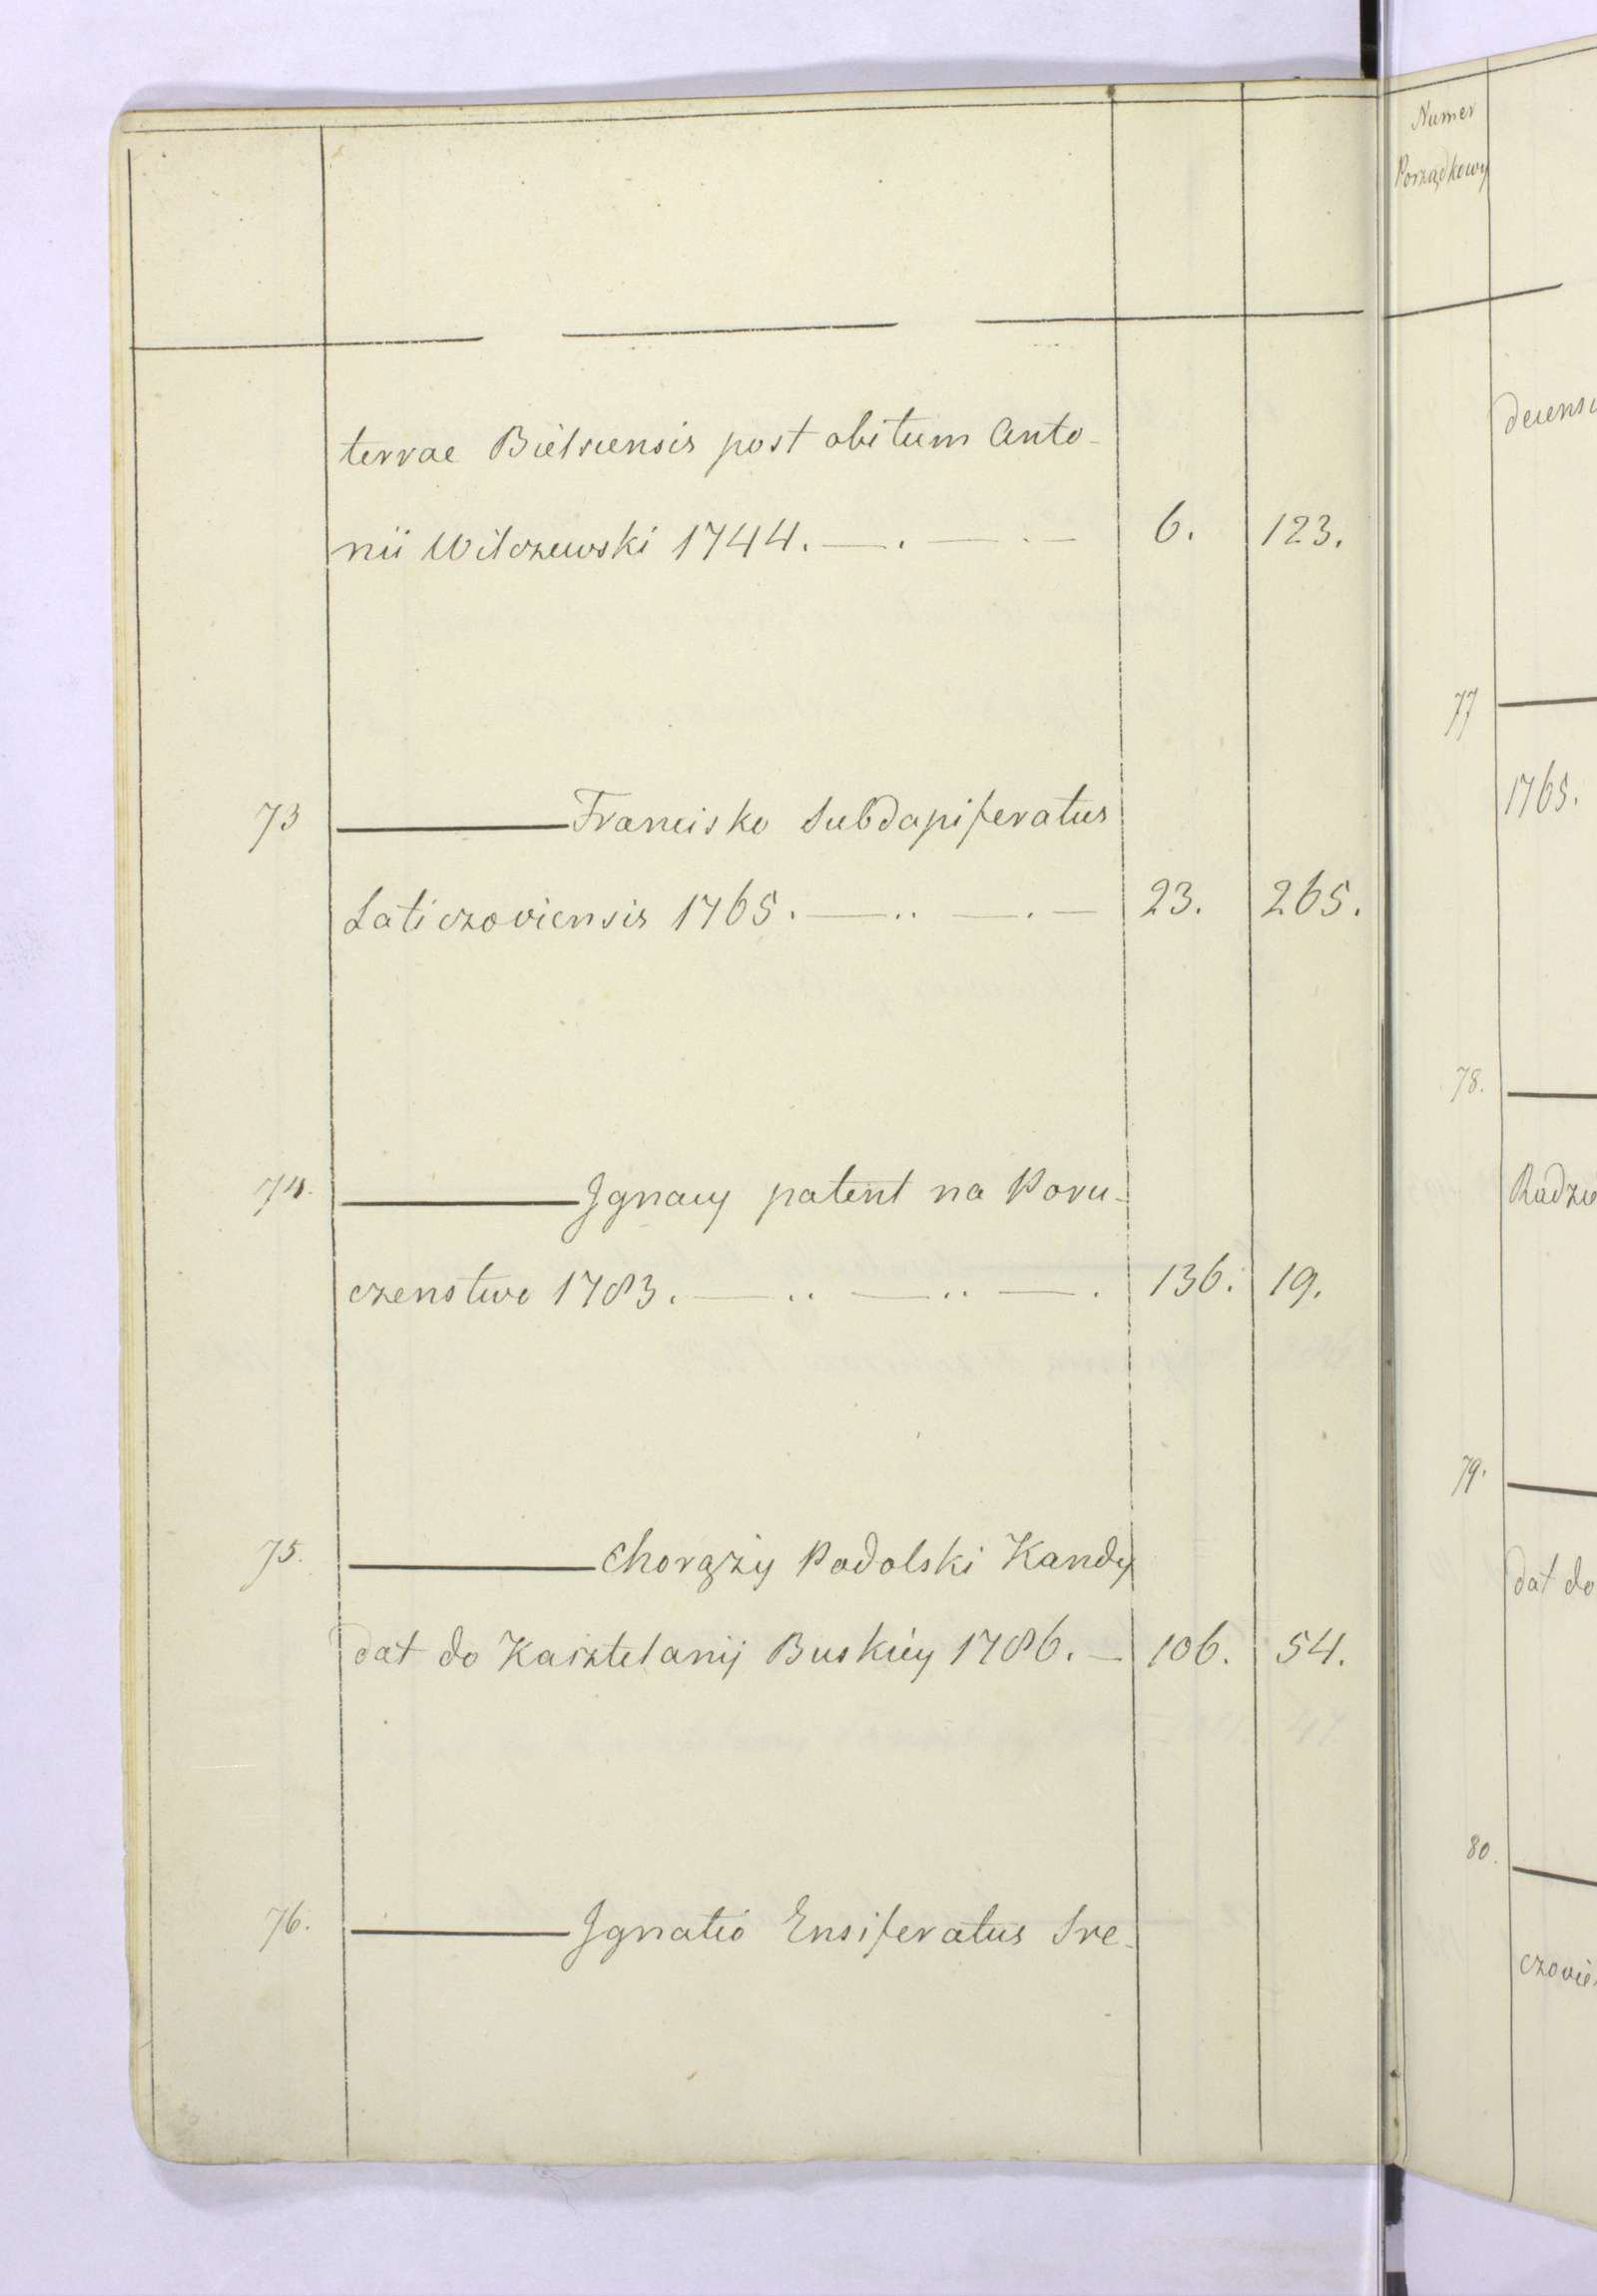 terrae Bielscensis post obitum Anto-
nii Wilczewski 1744. — . — . — 6. 123.
73 ——— Francisko Subdapiferatus
Laticzoviensis 1765. — .. — . — 23. 265.
74. ——— Ignacy patent na Poru-
czenstwo 1783. — .. — .. — . 136. 19.
75. ——— Chorąży Podolski Kandy
dat do Kasztelanij Buskiéy 1786. — 106. 54.
76. ——— Ignatio Ensiferatus Sre-
Numer
Porządkowy
77
1765.
78.
Radzie
79.
dat do
80.
czovie